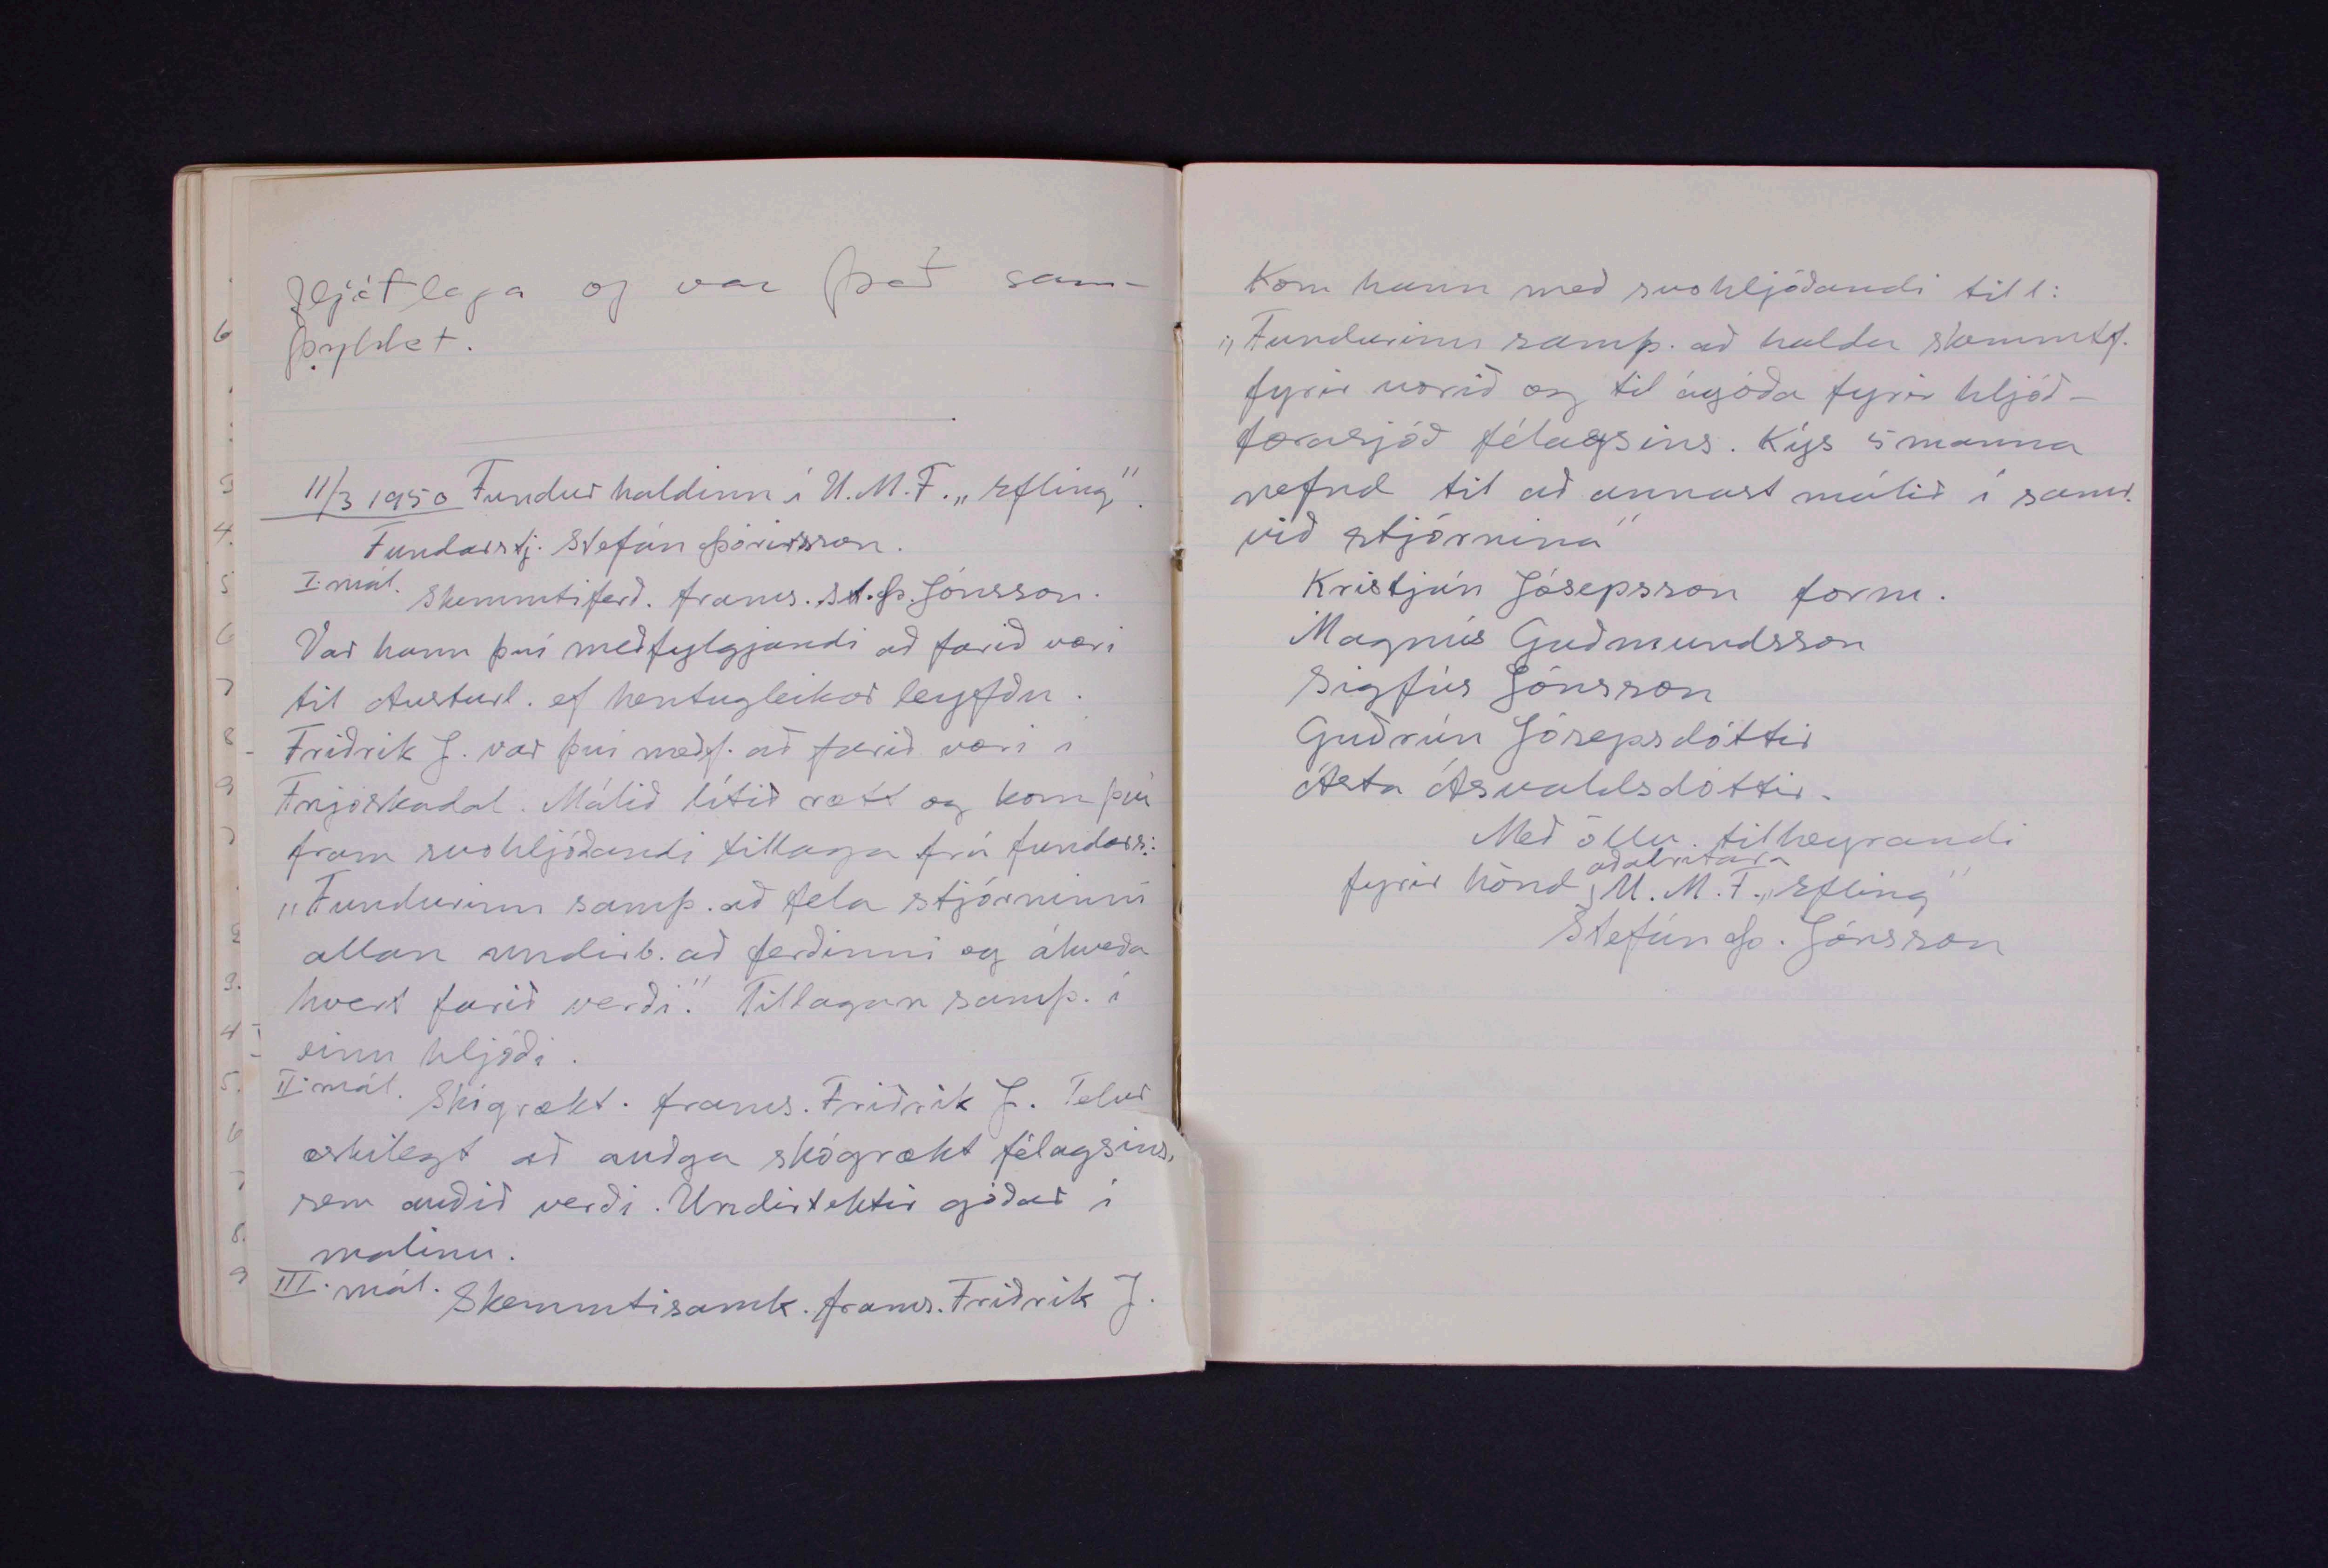 fljótlega og var það sam-
þykkt.
11/3 1950 Fundur haldinn í U.M.F. „Efling".
Fundarstj. Stefán Þórirsson.
I. mál. Skemmtiferð. frams. St. Þ. Jónsson.
Var hann því meðfylgjandi að farið væri
til Austurl. ef hentugleikar leyfðu.
Friðrik J. var því meðf. að farið væri í
Fnjoskadal. Málið lítið rætt og kom því
fram svohljóðandi tillaga frá fundars:
„Fundurinn samþ. að fela stjórninni
allan undirb. að ferðinni og ákveða
hvert farið verði." Tillagan samþ. í
einu hljóði.
II. mál. Skógrækt. frams. Friðrik J. Telur
æskilegt að auðga skógrækt félagsins,
sem auðið verði. Undirtektir góðar í
malinu.
III. mál. Skemmtisamk. frams. Friðrik J.
Kom hann með svohljóðandi till:
„Fundurinn samþ. að halda skemmtf.
fyrir vorið og til ágóða fyrir hljóð-
færasjóð félagsins. Kýs 5 manna
nefnd til að annast málið í samr.
við stjórnina"
Kristján Jósepsson form.
Magnús Guðmundsson
Sigfús Jónsson
Guðrún Jósepsdóttir
Ásta Ásvaldsdóttir.
Með öllu tilheyrandi
fyrir hönd aðalritara U.M.F. „Efling"
Stefán Þ. Jónsson